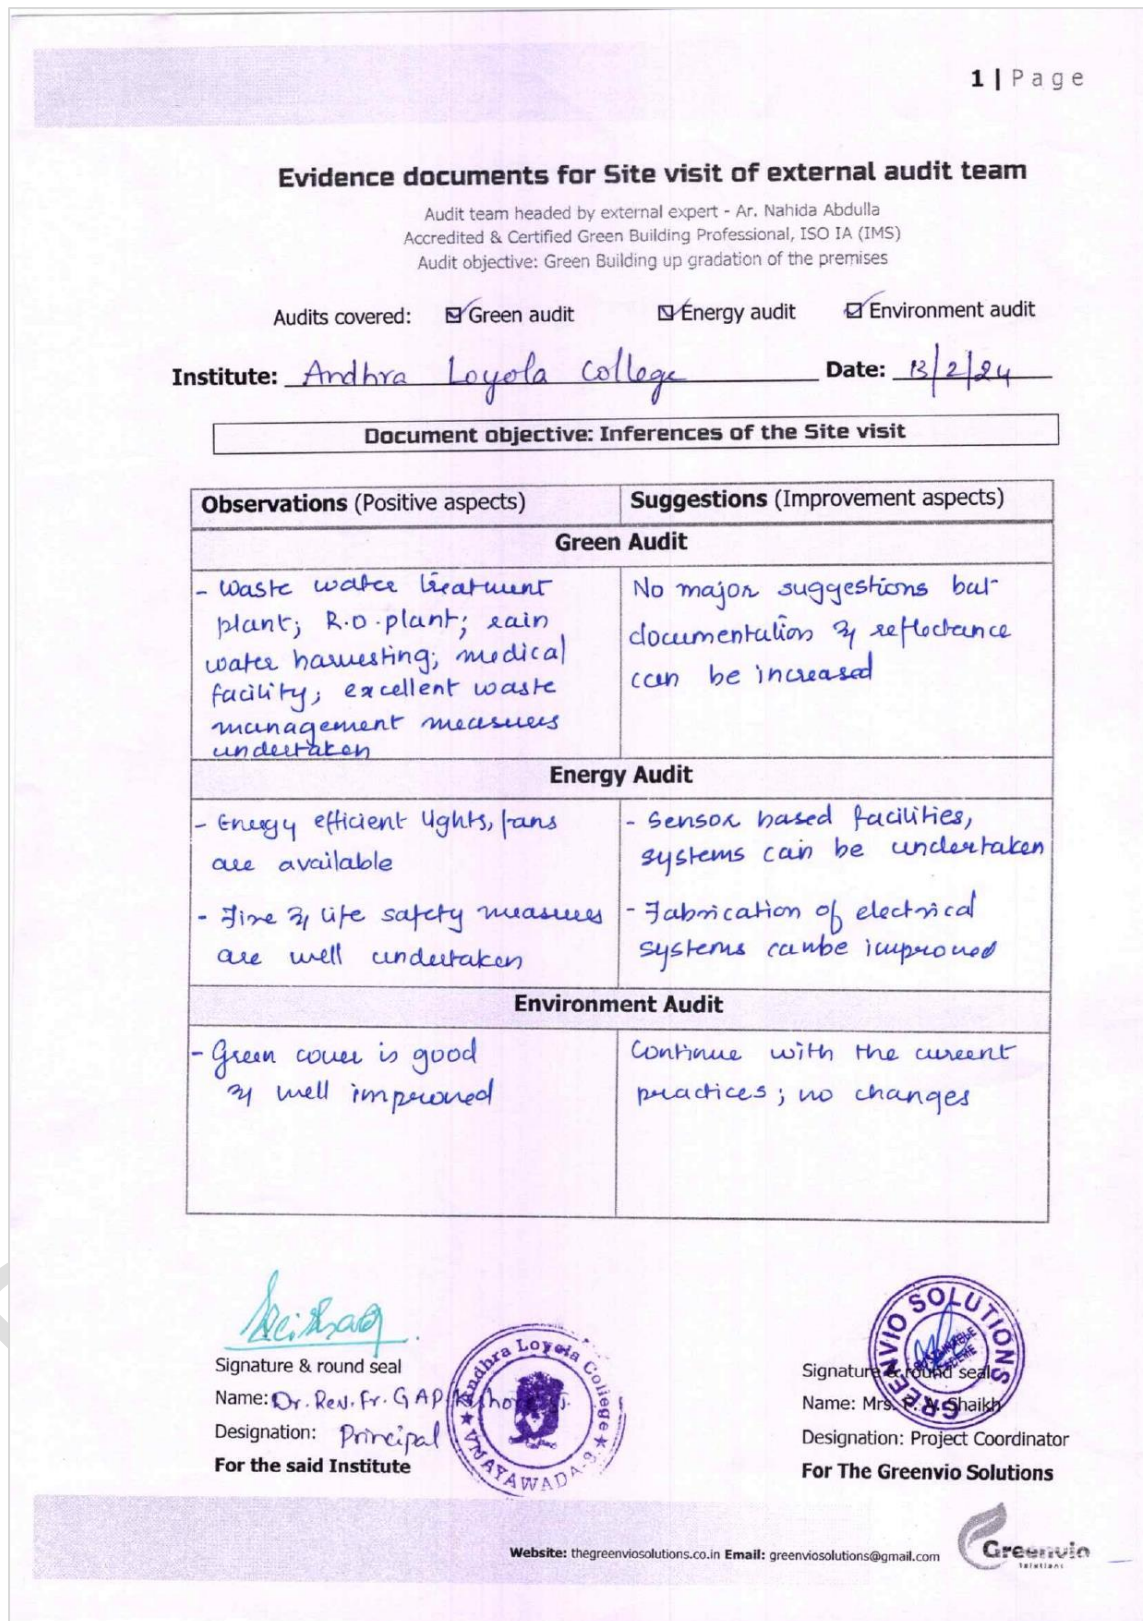 1 | Page
Evidence documents for Site visit of external audit team
Audit team headed by external expert - Ar. Nahida Abdulla
Accredited & Certified Green Building Professional, ISO IA (IMS)
Audit objective: Green Building up gradation of the premises
Audits covered: ☑ Green audit ☑ Energy audit ☑ Environment audit
Institute: Andhra Loyola College Date: 13/2/24
Document objective: Inferences of the Site visit
Observations (Positive aspects) Suggestions (Improvement aspects)
Green Audit
- Waste water treatment
plant; R.O. plant; rain
water harvesting; medical
facility; excellent waste
management measures
undertaken
No major suggestions but
documentation & reflectance
can be increased
Energy Audit
- Energy efficient lights, fans
are available
- Fire & life safety measures
are well undertaken
- Sensor based facilities,
systems can be undertaken
- Fabrication of electrical
systems can be improved
Environment Audit
- Green cover is good
& well improved
Continue with the current
practices; no changes
Signature & round seal
Name: Dr. Rev. Fr. GAP
Designation: Principal
For the said Institute
Andhra Loyola College
VIJAYAWADA-8.
GREENVIO SOLUTIONS
Signature & round seal
Name: Mrs. Shaikh
Designation: Project Coordinator
For The Greenvio Solutions
Website: thegreenviosolutions.co.in Email: greenviosolutions@gmail.com
Greenvio
Solutions